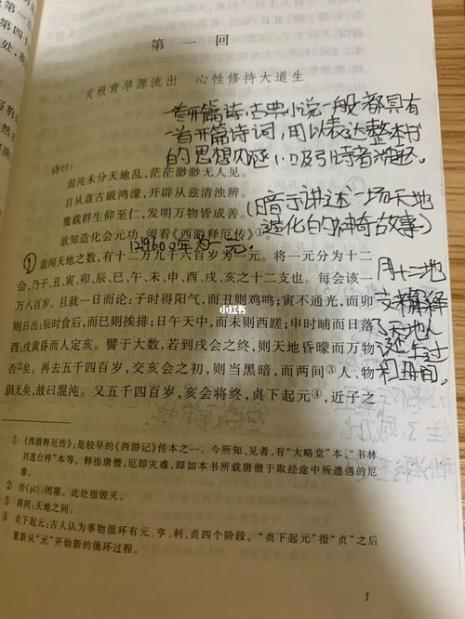 第一回
灵根育孕源流出 心性修持大道生
一首开篇诗：古典小说一般都具有
一首开篇诗词，用以表达整本书
的思想
诗曰：
混沌未分天地乱，茫茫渺渺无人见。
自从盘古破鸿濛，开辟从兹清浊辨。
覆载群生仰至仁，发明万物皆成善。
欲知造化会元功，须看《西游释厄传》①
(暗示讲述一场天地
造化的神奇故事)
129600岁为一元。
盖闻天地之数，有十二万九千六百岁为一元。将一元分为十二
会，乃子、丑、寅、卯、辰、巳、午、未、申、酉、戌、亥之十二支也。每会该一
万八百岁。且就一日而论：子时得阳气，而丑则鸡鸣；寅不通光，而卯
则日出；辰时食后，而巳则挨排；日午天中，而未则西蹉；申时晡而日落
酉；戌黄昏而人定亥。譬于大数，若到戌会之终，则天地昏曚而万物
否②矣。再去五千四百岁，交亥会之初，则当黑暗，而两间③人、物
俱无矣，故曰混沌。又五千四百岁，亥会将终，贞下起元④，近子之
用十二地
支来解释
了天地人
诞生过
程
小红书
①《西游释厄传》：是较早的《西游记》传本之一。今所知、见者，有“大略堂”本、“书林
刘莲台梓”本等。释指唐僧，厄即灾难，即如本书所载唐僧于取经途中所遭遇的厄
难。
② 否(pǐ)：闭塞。此处指毁灭。
③ 两间：天地之间。
④ 贞下起元：古人认为事物循环有元、亨、利、贞四个阶段。“贞下起元”指“贞”之后
重新从“元”开始新的循环过程。
1